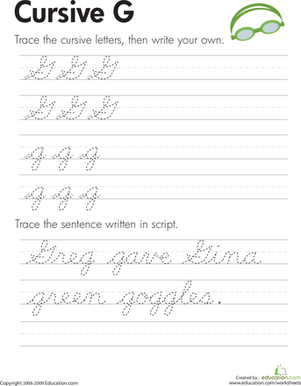 Cursive G
Trace the cursive letters, then write your own.
G G G
G G G
g g g
g g g
Trace the sentence written in script.
Greg gave Gina
green goggles.
Copyright 2008-2009 Education.com
Created by: education.com
www.education.com/worksheets